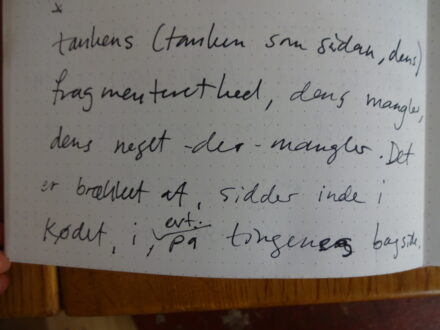 x
tankens (tanken som sådan, dens)
fragmenterethed, dens mangler,
dens noget-der-mangler. Det
er brækket af, sidder inde i
kødet, i, evt.
på tingenes bagside.